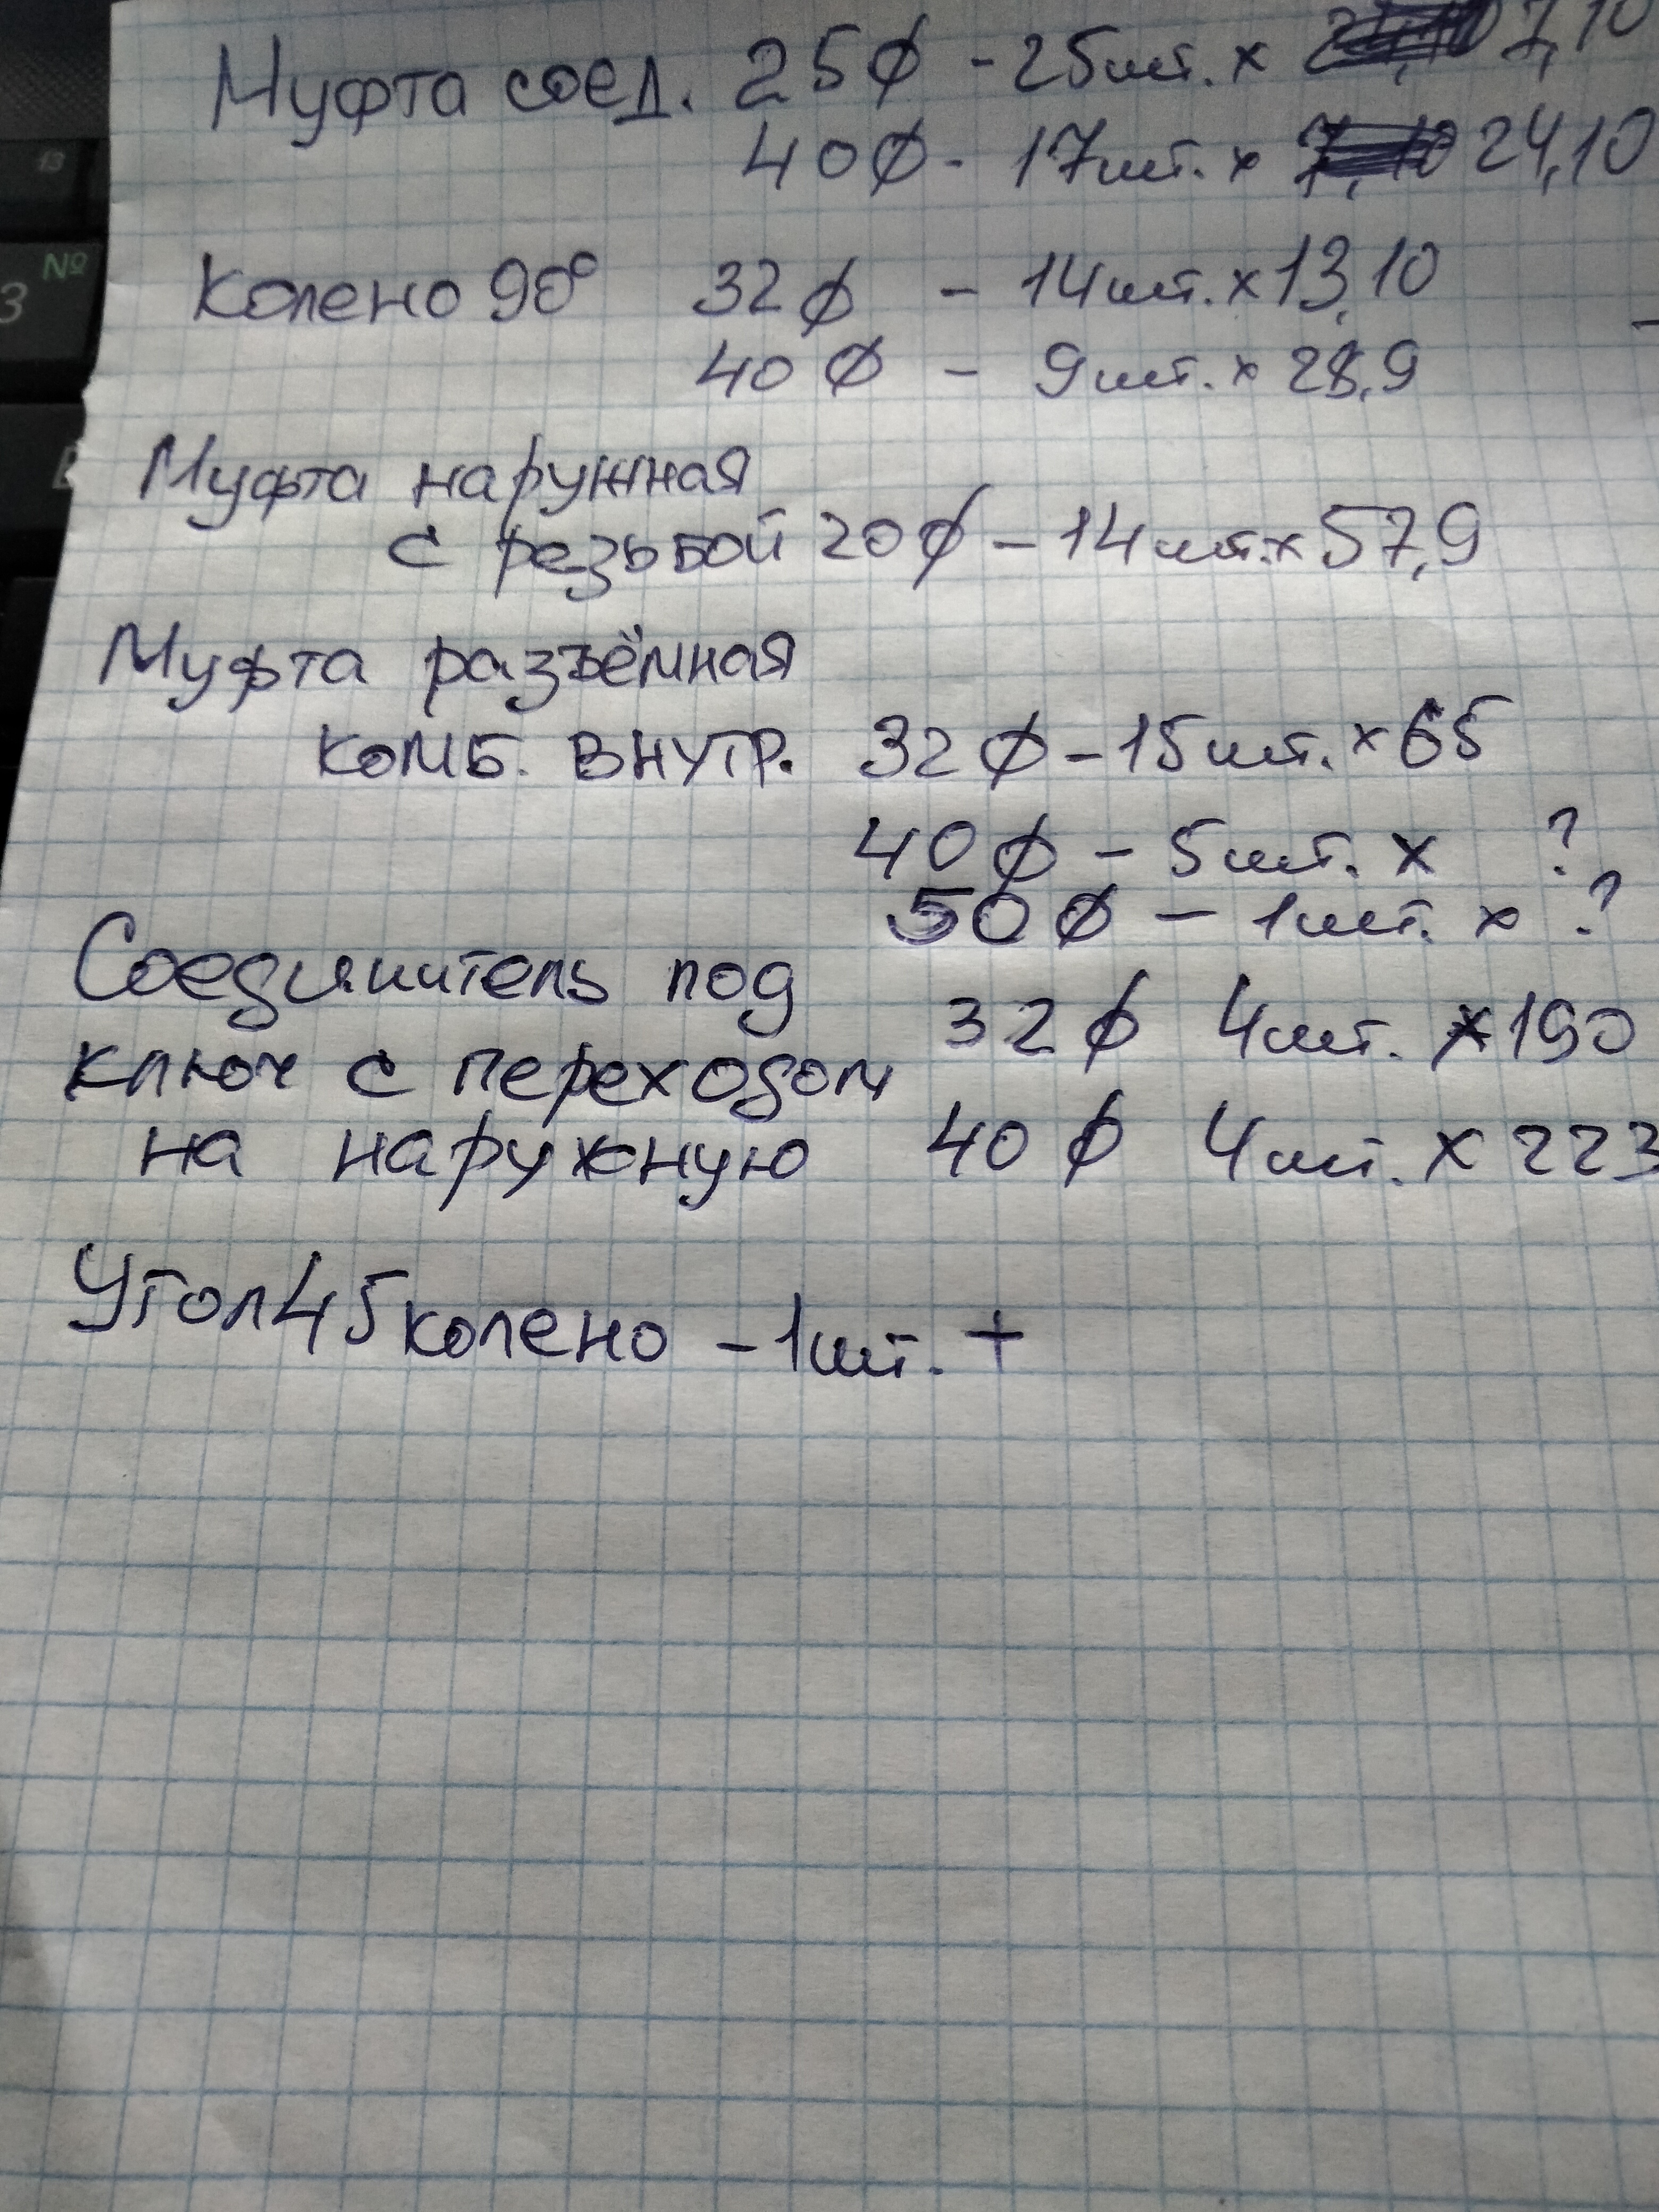 Муфта соед. 25ϕ - 25шт. x 7,10
40ϕ - 17шт. x 24,10
Колено 90° 32ϕ - 14шт. x 13,10
40ϕ - 9шт. x 28,9
Муфта наружная
с резьбой 20ϕ - 14шт. x 57,9
Муфта разъёмная
комб. внутр. 32ϕ - 15шт. x 65
40ϕ - 5шт. x ?
50ϕ - 1шт. x ?
Соединитель под 32ϕ 4шт. x 190
ключ с переходом
на наружную 40ϕ 4шт. x 223
Угол 45 колено - 1шт. +
№
3